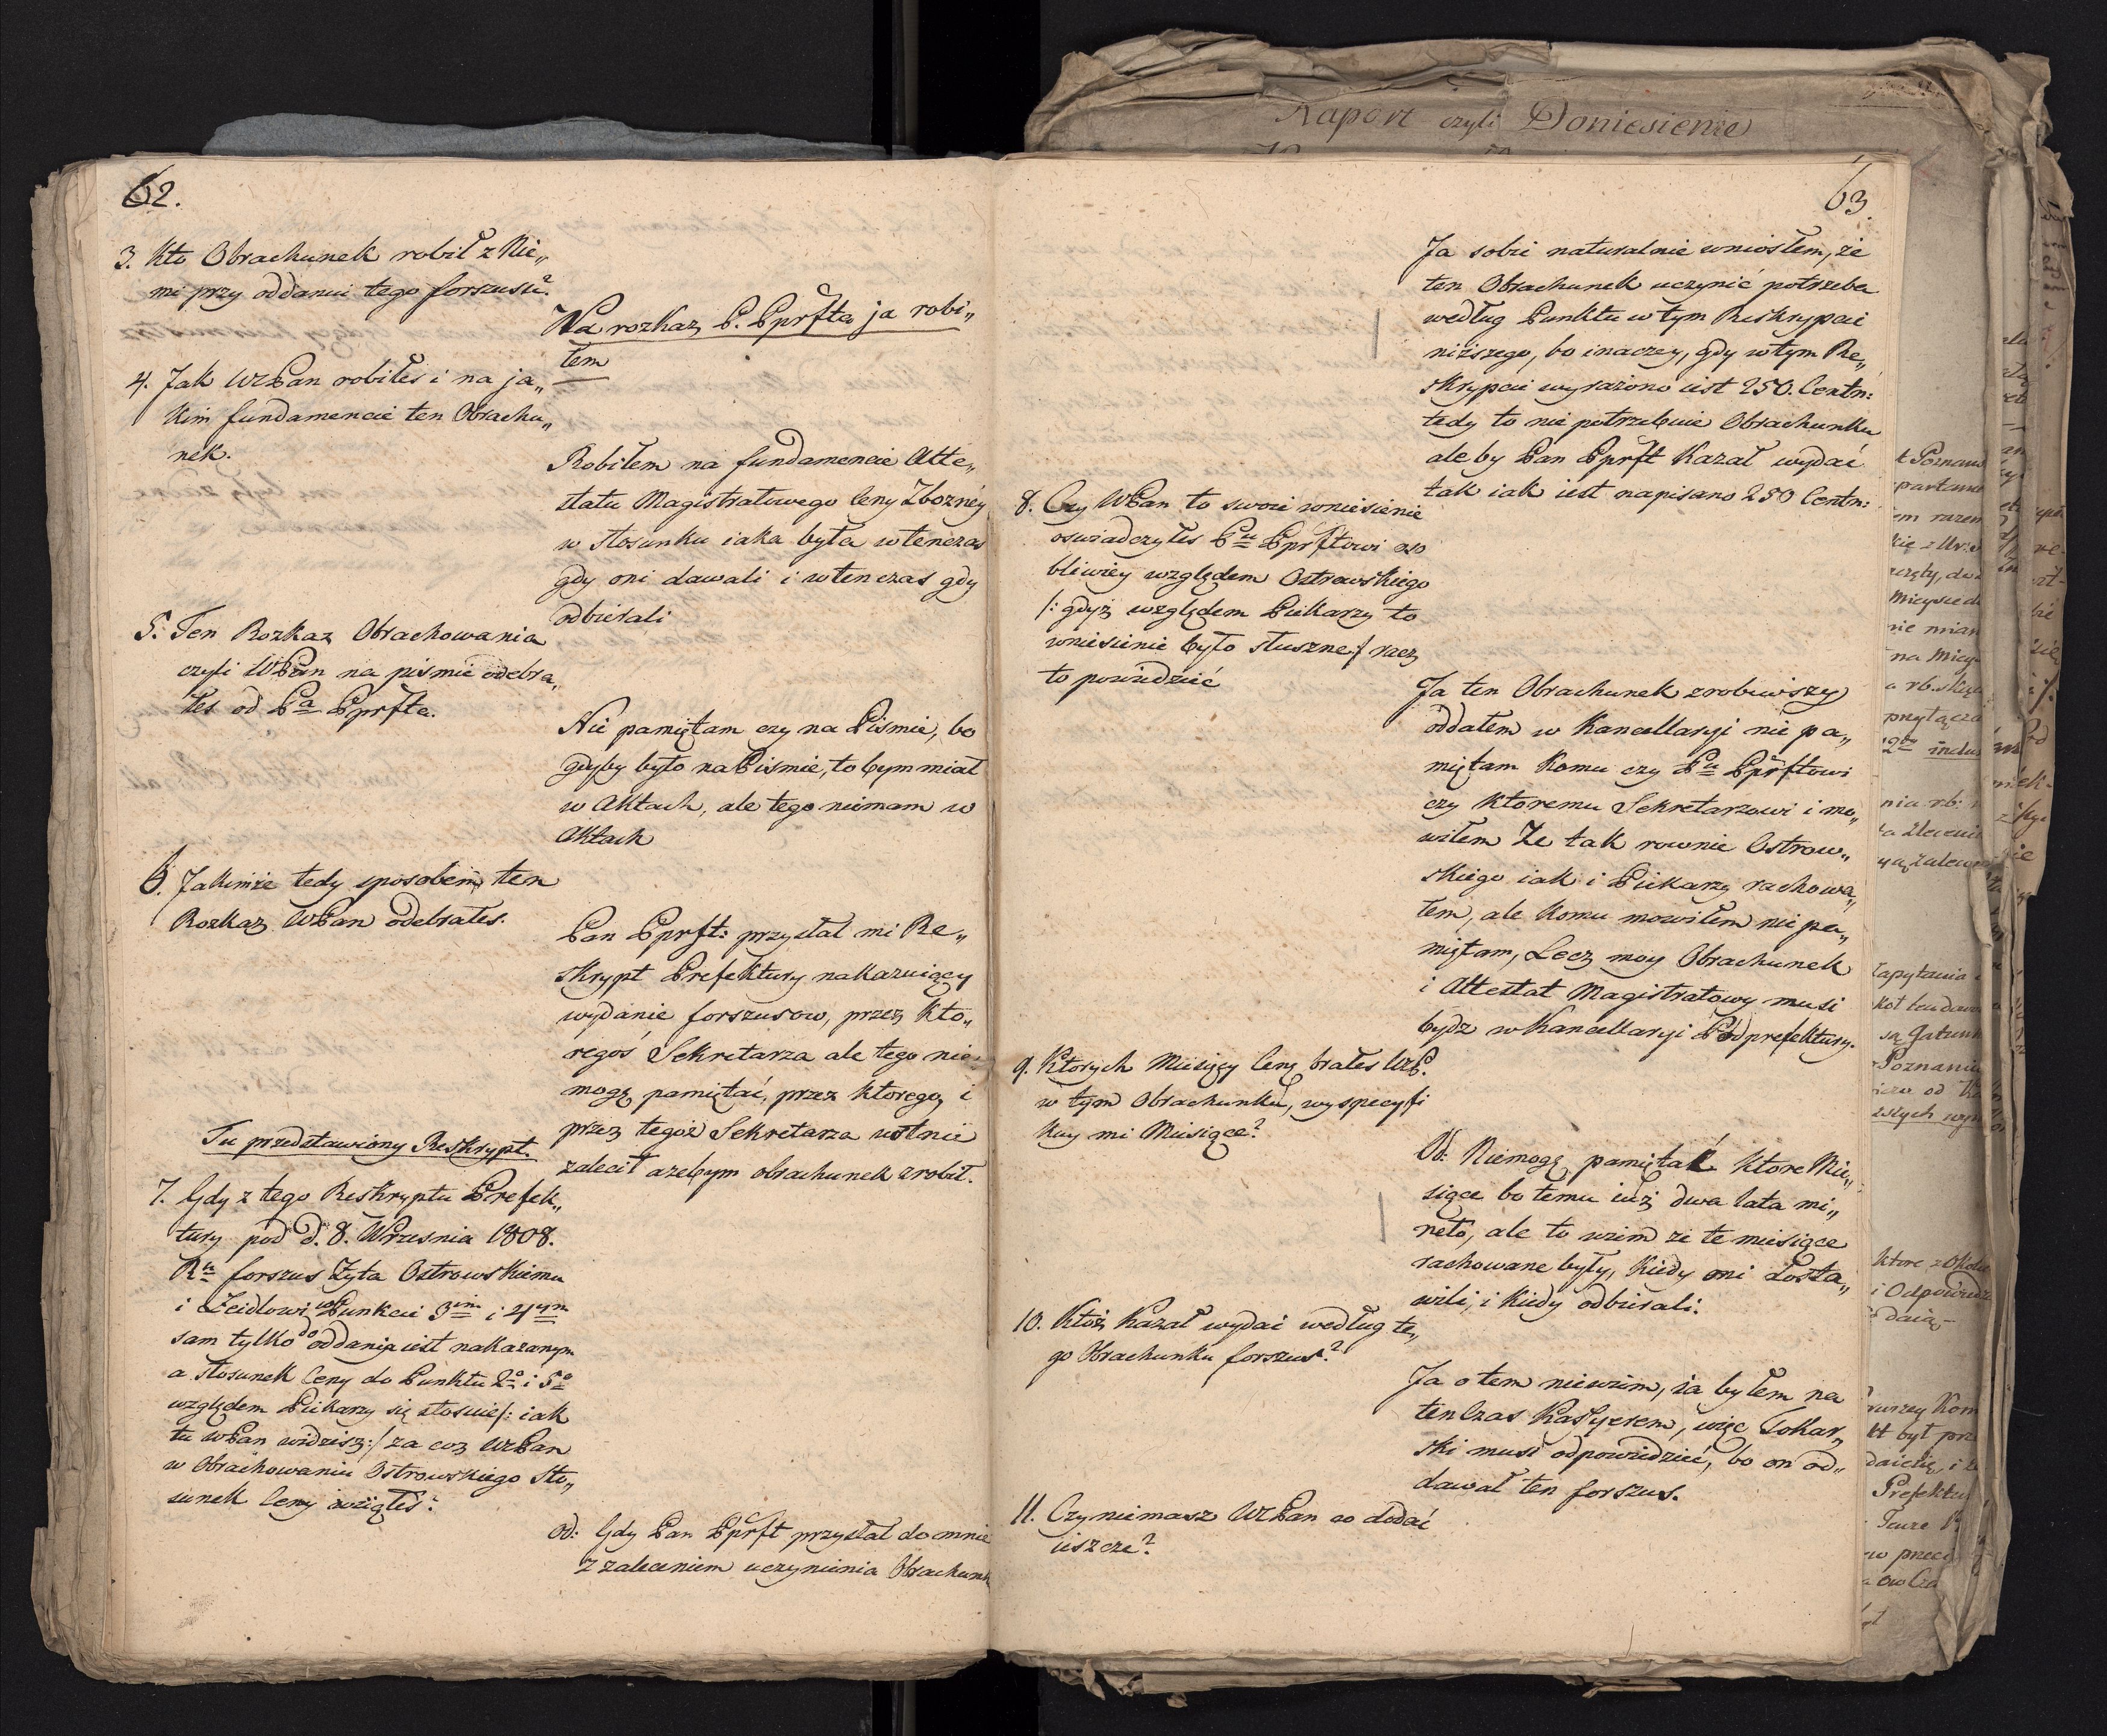 62.
3. Kto Obrachunek robił z Nie„
mi przy oddaniu tego forszusu?
Na rozkaz P. Pprfta ja robi„
łem
4. Jak WPan robiłes i na ja„
kim fundamencie ten Obrachu„
nek.
Robiłem na fundamencie Atte„
statu Magistratowego Ceny Zbożney
w stosunku iaka była wtenczas
gdy oni dawali i wtenczas gdy
odbierali
5. Ten Rozkaz Obrachowania
czyli WPan na pismie odebra„
łes od Pa Pprfta.
Nie pamiętam czy na Pismie, bo
gdyby było na Pismie, to bym miał
w Aktach, ale tego niemam w
Aktach
6. Jakimże tedy sposobem ten
Rozkaz WPan odebrałes.
Pan Pprft: przysłał mi Re„
skrypt Prefektury nakazuiący
wydanie forszusow, przez kto„
regoś Sekretarza ale tego nie
mogę pamiętać, przez ktorego, i
przez tegoż Sekretarza ustnie
zalecił azebym obrachunek zrobił.
Tu przedstawiony Reskrypt.
7. Gdy z tego Reskryptu Prefek„
tury pod d. 8. Wrzesnia 1808.
Ru forszus Żyta Ostrowskiemu
i Zeidlowi w Punkcie 3im i 4ym
sam tylko do oddania iest nakazanym
a stosunek Ceny do Punktu 2o i 5o
względem Piekarzy się stosuie /: iak
tu WPan widzisz :/ za coz WPan
w Obrachowaniu Ostrowskiego Sto„
sunek Ceny wziąłes?
Od: Gdy Pan Pprft przysłał do mnie
z zaleceniem uczynienia Obrachunk
63.
Ja sobie naturalnie wniosłem, że
ten Obrachunek uczynić potrzeba
według Punktu w tym Reskrypcie
niższego, bo inaczey, gdy w tym Re„
skrypcie wyrażono iest 250. Centn:
tedy to nie potrzebuie Obrachunku
ale by Pan Pprft Kazał wydać
tak iak iest napisano 250 Centn:
8. Czy WPan to swoie wniesienie
oswiadczyłes Pu Pprftowi oso
bliwiey względem Ostrowskiego
/: gdyż względem Piekarzy to
wniesienie było słuszne :/ racz
to powiedzieć
Ja ten Obrachunek zrobiwszy
oddałem w Kancellaryi nie pa„
miętam Komu czy Pu Pprftowi
czy ktoremu Sekretarzowi i mo„
wiłem Ze tak rownie Ostrow„
skiego iak i Piekarzy rachowa„
łem, ale komu mowiłem nie pa„
miętam, Lecz moy Obrachunek
i Attestat Magistratowy musi
bydz w Kancellaryi Podprefektury.
9. Ktorych Miesięcy Ceny brałes WP.
w tym Obrachunku, wyspecyfi
kuy mi Miesiące?
Od: Niemogę pamiętać ktore Mie„
siące bo temu iuż dwa lata mi„
neło, ale to wiem ze te miesiące
rachowane były, kiedy oni dosta„
wili, i kiedy odbierali.
10. Ktoż Kazał wydać według te„
go Obrachunku forszus?
Ja o tem niewiem, ia byłem na
ten Czas Kassyerem, więc Tokar„
ski musi odpowiedzieć, bo on od„
dawał ten forszus.
11. Czy niemasz WPan co dodać
ieszcze?
Raport czyli Doniesienie